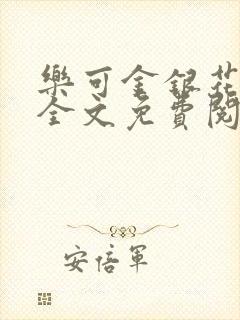 樂可金銀花
全文免費閱
安倍軍